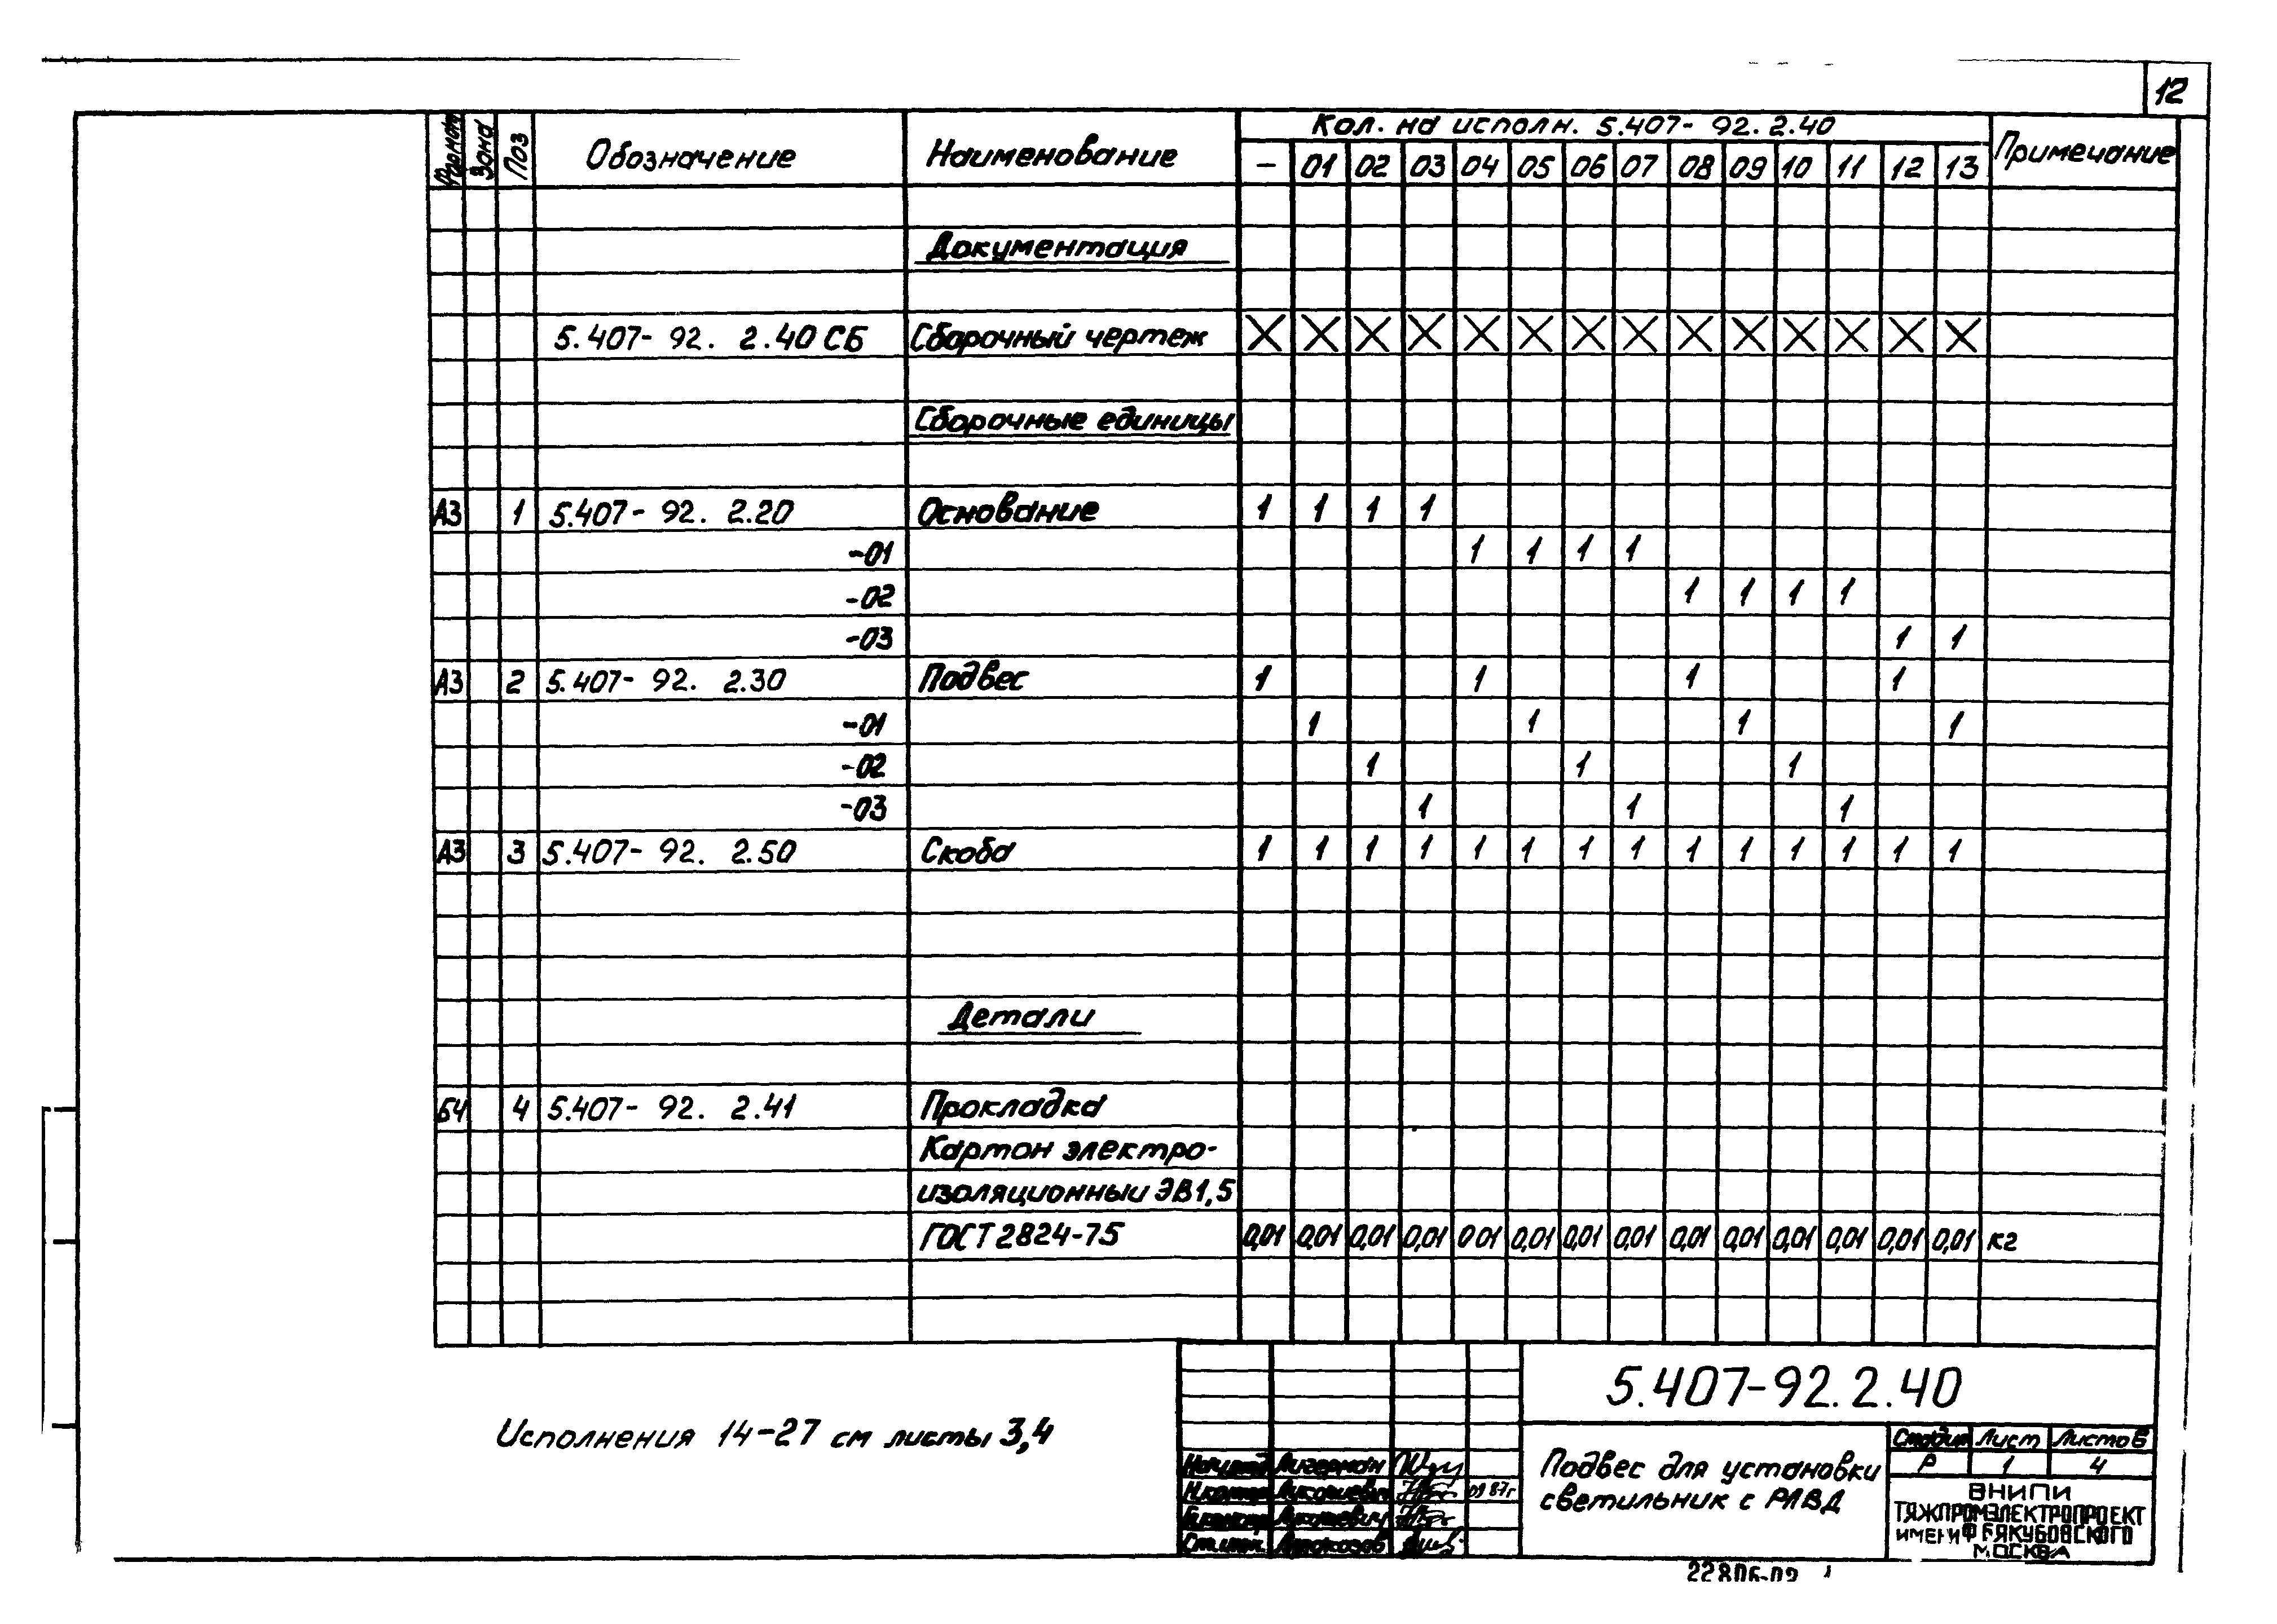 12
Формат Зона Поз Обозначение Наименование Кол. на исполн. 5.407-92.2.40 Примечание
– 01 02 03 04 05 06 07 08 09 10 11 12 13
Документация
5.407-92. 2.40 СБ Сборочный чертеж X X X X X X X X X X X X X X
Сборочные единицы
А3 1 5.407-92. 2.20 Основание 1 1 1 1
-01 1 1 1 1
-02 1 1 1 1
-03 1 1
А3 2 5.407-92. 2.30 Подвес 1 1 1 1
-01 1 1 1 1
-02 1 1 1
-03 1 1 1
А3 3 5.407-92. 2.50 Скоба 1 1 1 1 1 1 1 1 1 1 1 1 1 1
Детали
БЧ 4 5.407-92. 2.41 Прокладка
Картон электро-
изоляционный ЭВ1,5
ГОСТ 2824-75 0,01 0,01 0,01 0,01 0 01 0,01 0,01 0,01 0,01 0,01 0,01 0,01 0,01 0,01 кг
Исполнения 14-27 см листы 3,4
5.407-92.2.40
Подвес для установки
светильник с РЛВД
Стадия Лист Листов
Р 1 4
ВНИПИ
ТЯЖПРОМЭЛЕКТРОПРОЕКТ
ИМЕНИ Ф Б ЯКУБОВСКОГО
МОСКВА
Лигерман
Н.контр 09 87г
Ст.инж.
22806-02